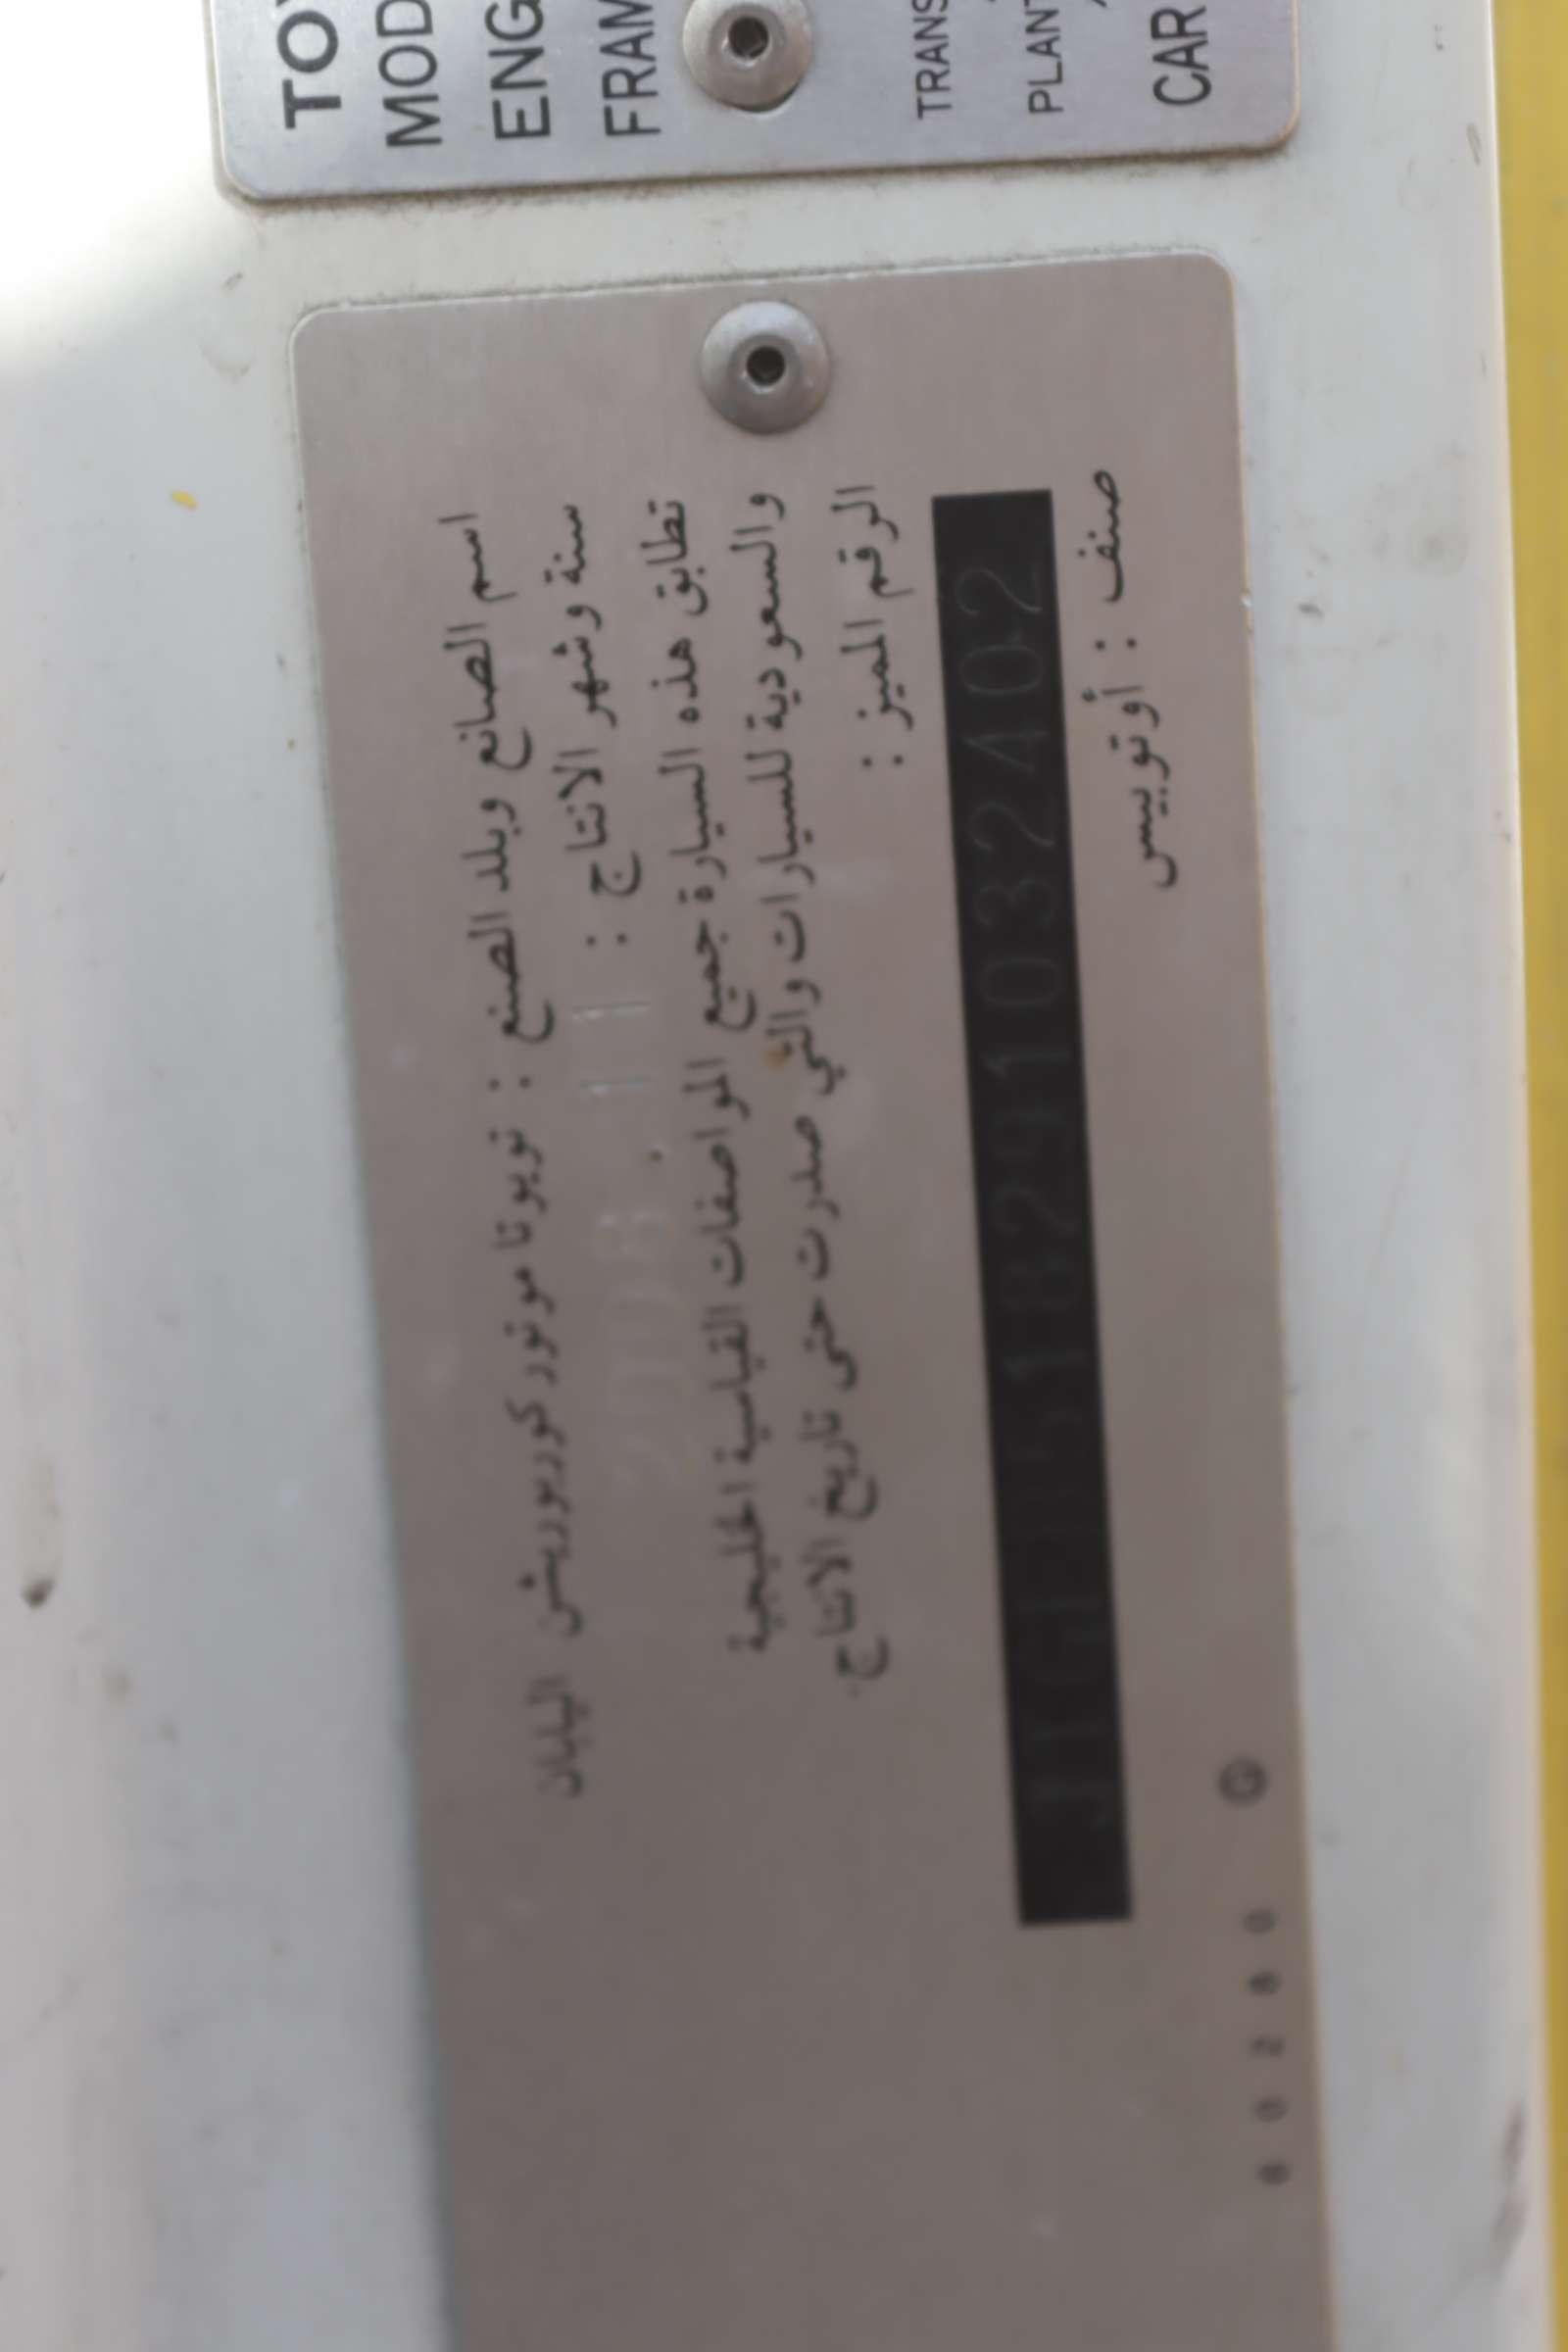 TOY
MOD
ENG
FRAM
TRANS
PLANT
CAR
اسم الصانع وبلد الصنع : تويوتا موتور كوربوريشن اليابان
سنة وشهر الانتاج : 2008. 11
تطابق هذه السيارة جميع المواصفات القياسية الخليجية
والسعودية للسيارات والتي صدرت حتى تاريخ الانتاج.
الرقم المميز :
JTGFB518291032402
صنف : أوتوبيس
Ⓖ